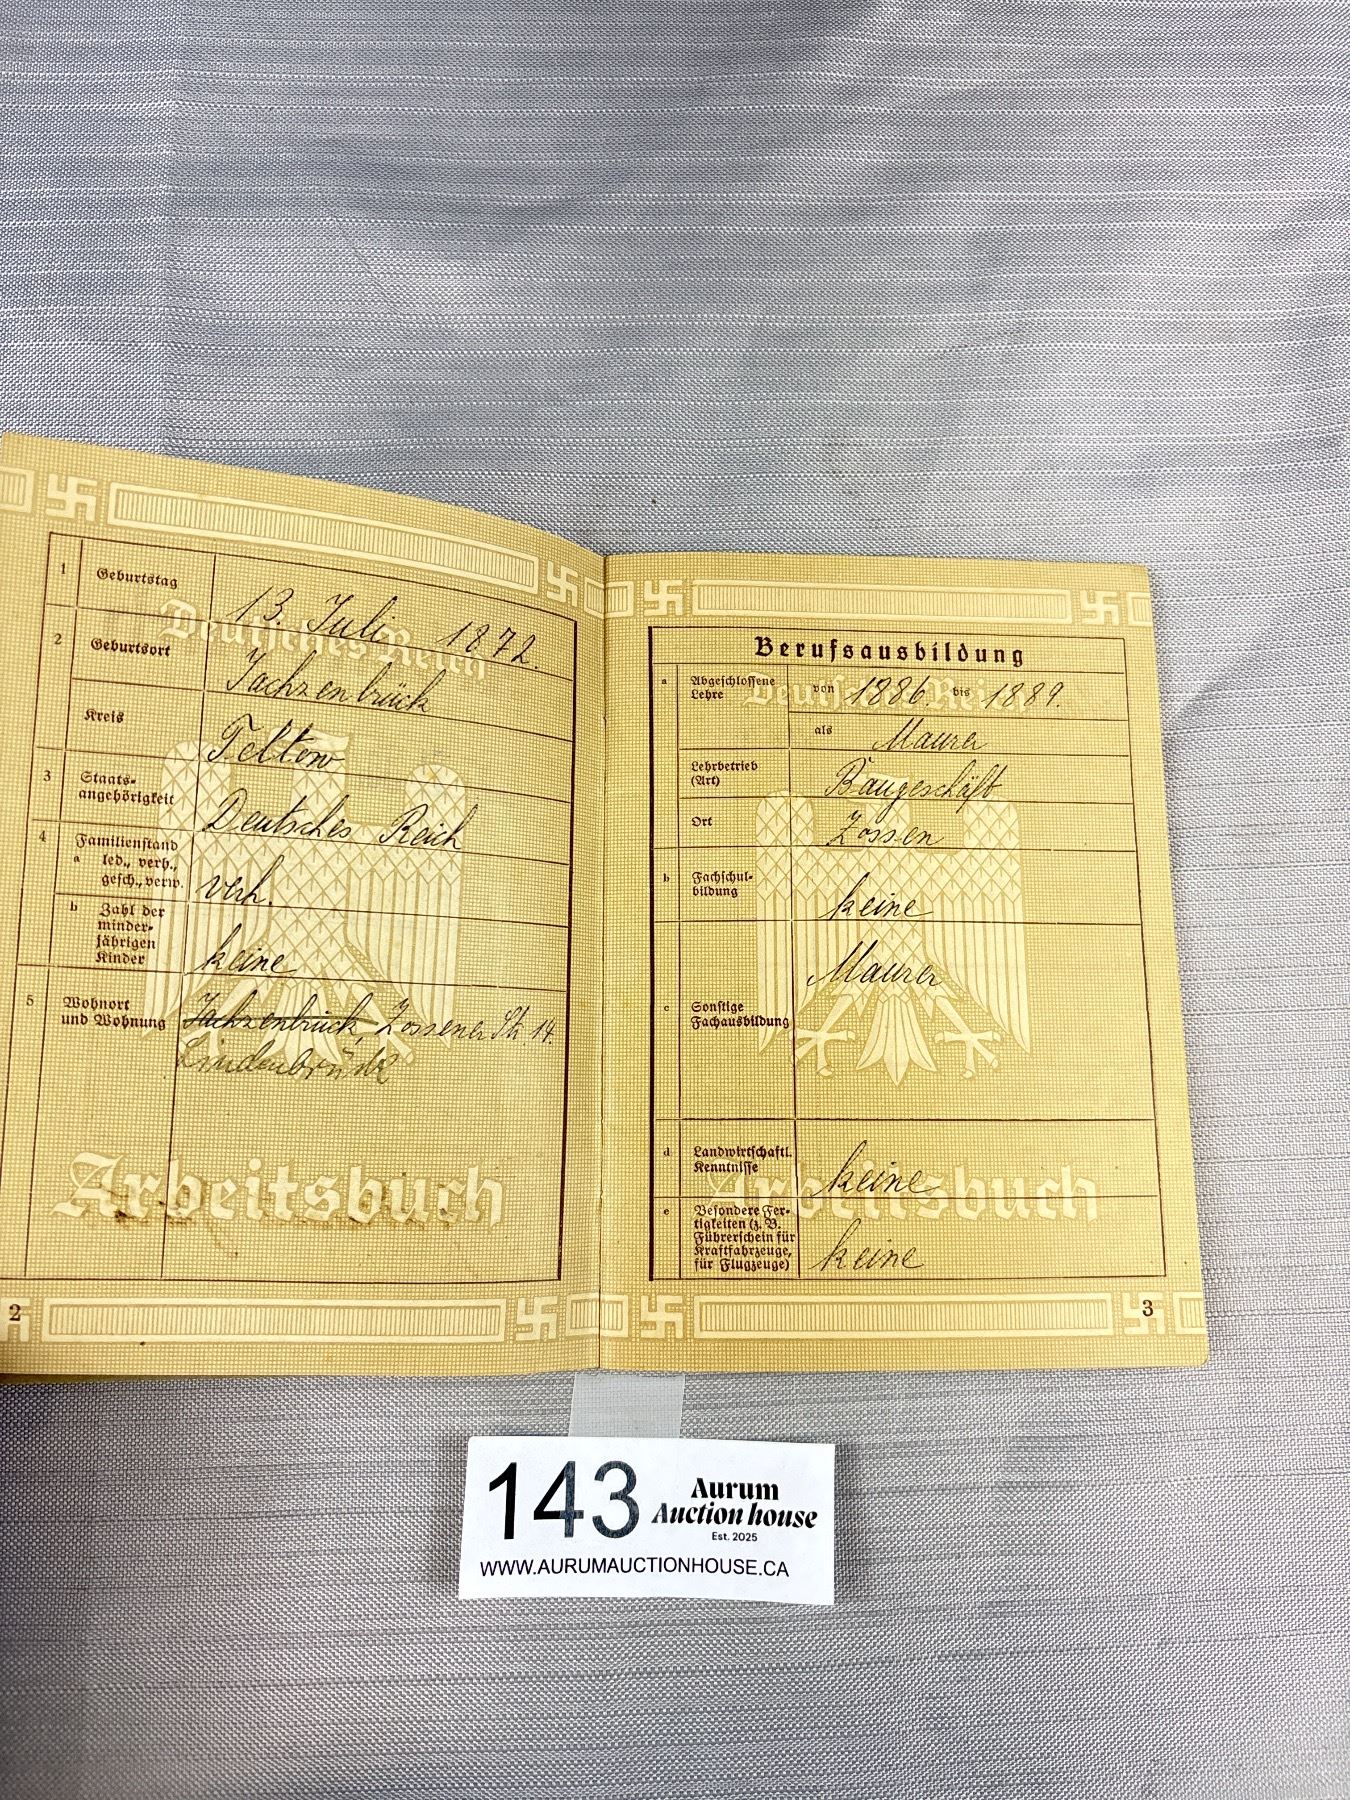 Deutsches Reich
1 Geburtstag 13. Juli 1872.
2 Geburtsort Jachzenbrück
Kreis Teltow
3 Staats-
angehörigkeit Deutsches Reich
4 Familienstand
a led., verh.,
gesch., verw. verh.
b Zahl der
minder-
jährigen
Kinder keine
5 Wohnort
und Wohnung Jachzenbrück, Zossener Str. 14.
Lindenbrück
Arbeitsbuch
2
Berufsausbildung
Deutsches Reich
a Abgeschlossene
Lehre von 1886. bis 1889.
als Maurer
Lehrbetrieb
(Art) Baugeschäft
Ort Zossen
b Fachschul-
bildung keine
Maurer
c Sonstige
Fachausbildung
d Landwirtschaftl.
Kenntnisse keine
e Besondere Fer-
tigkeiten (z. B.
Führerschein für
Kraftfahrzeuge,
für Flugzeuge) keine
Arbeitsbuch
3
143 Aurum
Auction house
Est. 2025
WWW.AURUMAUCTIONHOUSE.CA